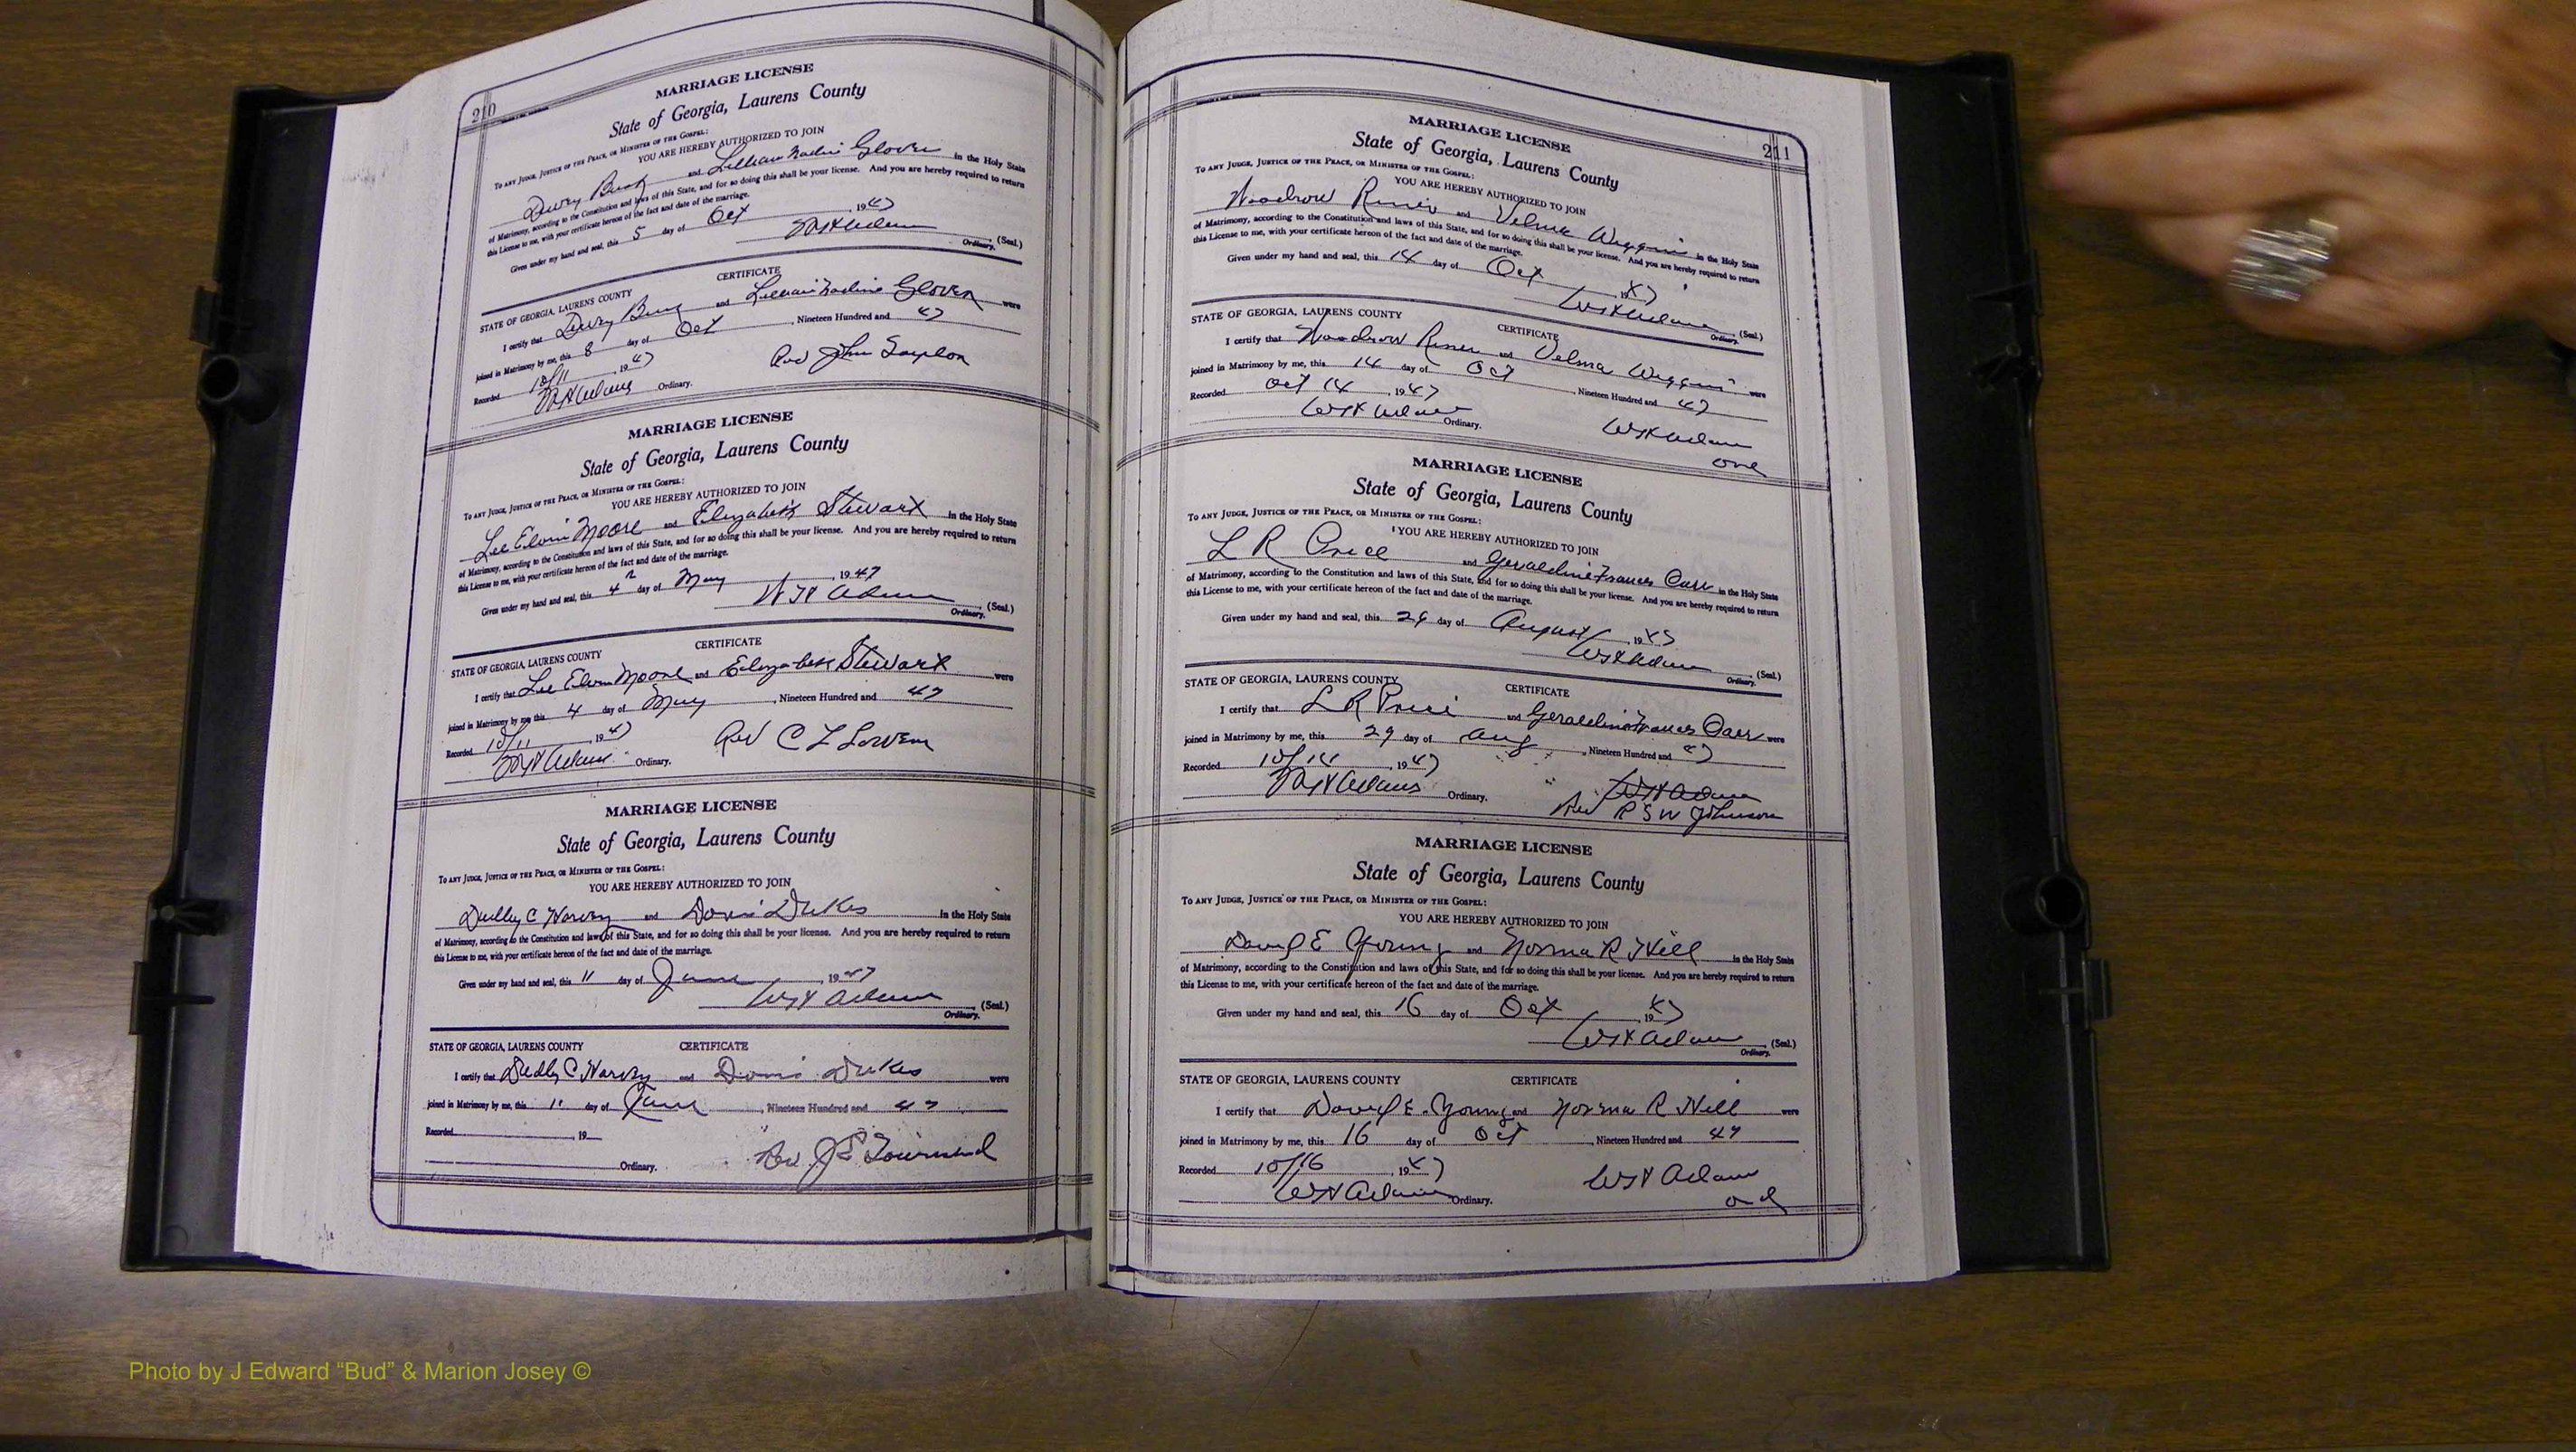 210
MARRIAGE LICENSE
State of Georgia, Laurens County
To any Judge, Justice of the Peace, or Minister of the Gospel:
YOU ARE HEREBY AUTHORIZED TO JOIN
and Glover in the Holy State
of Matrimony, according to the Constitution and laws of this State, and for so doing this shall be your license. And you are hereby required to return
this License to me, with your certificate hereon of the fact and date of the marriage.
Given under my hand and seal, this 5 day of Oct 1947
(Seal.)
Ordinary.
CERTIFICATE
STATE OF GEORGIA, LAURENS COUNTY
I certify that and Glover were
joined in Matrimony by me, this 8 day of Oct, Nineteen Hundred and 47
Recorded 10/11, 1947
Rev John
Ordinary.
MARRIAGE LICENSE
State of Georgia, Laurens County
To any Judge, Justice of the Peace, or Minister of the Gospel:
YOU ARE HEREBY AUTHORIZED TO JOIN
Lee Elvin Moore and Elizabeth Stewart in the Holy State
of Matrimony, according to the Constitution and laws of this State, and for so doing this shall be your license. And you are hereby required to return
this License to me, with your certificate hereon of the fact and date of the marriage.
Given under my hand and seal, this 4 day of May, 1947
W H Adams (Seal.)
Ordinary.
CERTIFICATE
STATE OF GEORGIA, LAURENS COUNTY
I certify that Lee Elvin Moore and Elizabeth Stewart were
joined in Matrimony by me, this 4 day of May, Nineteen Hundred and 47
Recorded 10/11, 1947
Rev C L
W H Adams Ordinary.
MARRIAGE LICENSE
State of Georgia, Laurens County
To any Judge, Justice of the Peace, or Minister of the Gospel:
YOU ARE HEREBY AUTHORIZED TO JOIN
Dudley C and Doris Dukes in the Holy State
of Matrimony, according to the Constitution and laws of this State, and for so doing this shall be your license. And you are hereby required to return
this License to me, with your certificate hereon of the fact and date of the marriage.
Given under my hand and seal, this 11 day of June, 1947
W H Adams (Seal.)
Ordinary.
STATE OF GEORGIA, LAURENS COUNTY CERTIFICATE
I certify that and Doris Dukes were
joined in Matrimony by me, this 11 day of June, Nineteen Hundred and 47
Recorded , 19
Rev J E Townsend
Ordinary.
211
MARRIAGE LICENSE
State of Georgia, Laurens County
To any Judge, Justice of the Peace, or Minister of the Gospel:
YOU ARE HEREBY AUTHORIZED TO JOIN
Woodrow and Velma in the Holy State
of Matrimony, according to the Constitution and laws of this State, and for so doing this shall be your license. And you are hereby required to return
this License to me, with your certificate hereon of the fact and date of the marriage.
Given under my hand and seal, this 14 day of Oct 1947
W H Adams (Seal.)
Ordinary.
STATE OF GEORGIA, LAURENS COUNTY CERTIFICATE
I certify that Woodrow and Velma were
joined in Matrimony by me, this 14 day of Oct, Nineteen Hundred and 47
Recorded Oct 14, 1947
W H Adams Ordinary.
W H Adams
MARRIAGE LICENSE
State of Georgia, Laurens County
To any Judge, Justice of the Peace, or Minister of the Gospel:
YOU ARE HEREBY AUTHORIZED TO JOIN
L R Price and Geraldine Frances in the Holy State
of Matrimony, according to the Constitution and laws of this State, and for so doing this shall be your license. And you are hereby required to return
this License to me, with your certificate hereon of the fact and date of the marriage.
Given under my hand and seal, this 29 day of August, 1947
W H Adams (Seal.)
Ordinary.
STATE OF GEORGIA, LAURENS COUNTY CERTIFICATE
I certify that L R Price and Geraldine Frances were
joined in Matrimony by me, this 29 day of Aug, Nineteen Hundred and 47
Recorded 10/14, 1947
W H Adams Ordinary.
W H Adams
Rev R S W Johnson
MARRIAGE LICENSE
State of Georgia, Laurens County
To any Judge, Justice of the Peace, or Minister of the Gospel:
YOU ARE HEREBY AUTHORIZED TO JOIN
E Young and Norma R Hill in the Holy State
of Matrimony, according to the Constitution and laws of this State, and for so doing this shall be your license. And you are hereby required to return
this License to me, with your certificate hereon of the fact and date of the marriage.
Given under my hand and seal, this 16 day of Oct, 1947
W H Adams (Seal.)
Ordinary.
STATE OF GEORGIA, LAURENS COUNTY CERTIFICATE
I certify that E. Young and Norma R Hill were
joined in Matrimony by me, this 16 day of Oct, Nineteen Hundred and 47
Recorded 10/16, 1947
W H Adams Ordinary.
W H Adams
Photo by J Edward “Bud” & Marion Josey ©